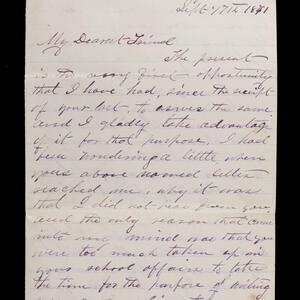 Sept 17th 1871
My Dearest Friend
The present
is the very first opportunity
that I have had, since the receipt
of your last, to answer the same
and I gladly take advantage
of it for that purpose. I had
been wondering a little when
yours above named letter
reached me, why it was
that I did not hear from you
and the only reason that came
into my mind was that you
were too much taken up in
your school affairs to take
the time for the purpose of writing